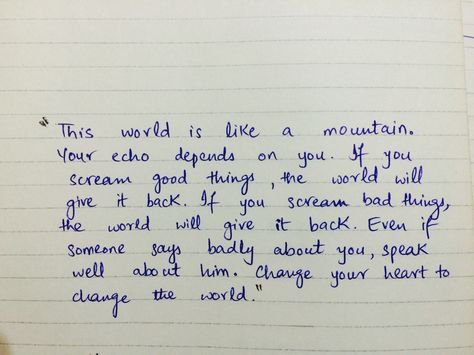 "This world is like a mountain.
Your echo depends on you. If you
scream good things, the world will
give it back. If you scream bad things,
the world will give it back. Even if
someone says badly about you, speak
well about him. Change your heart to
change the world."